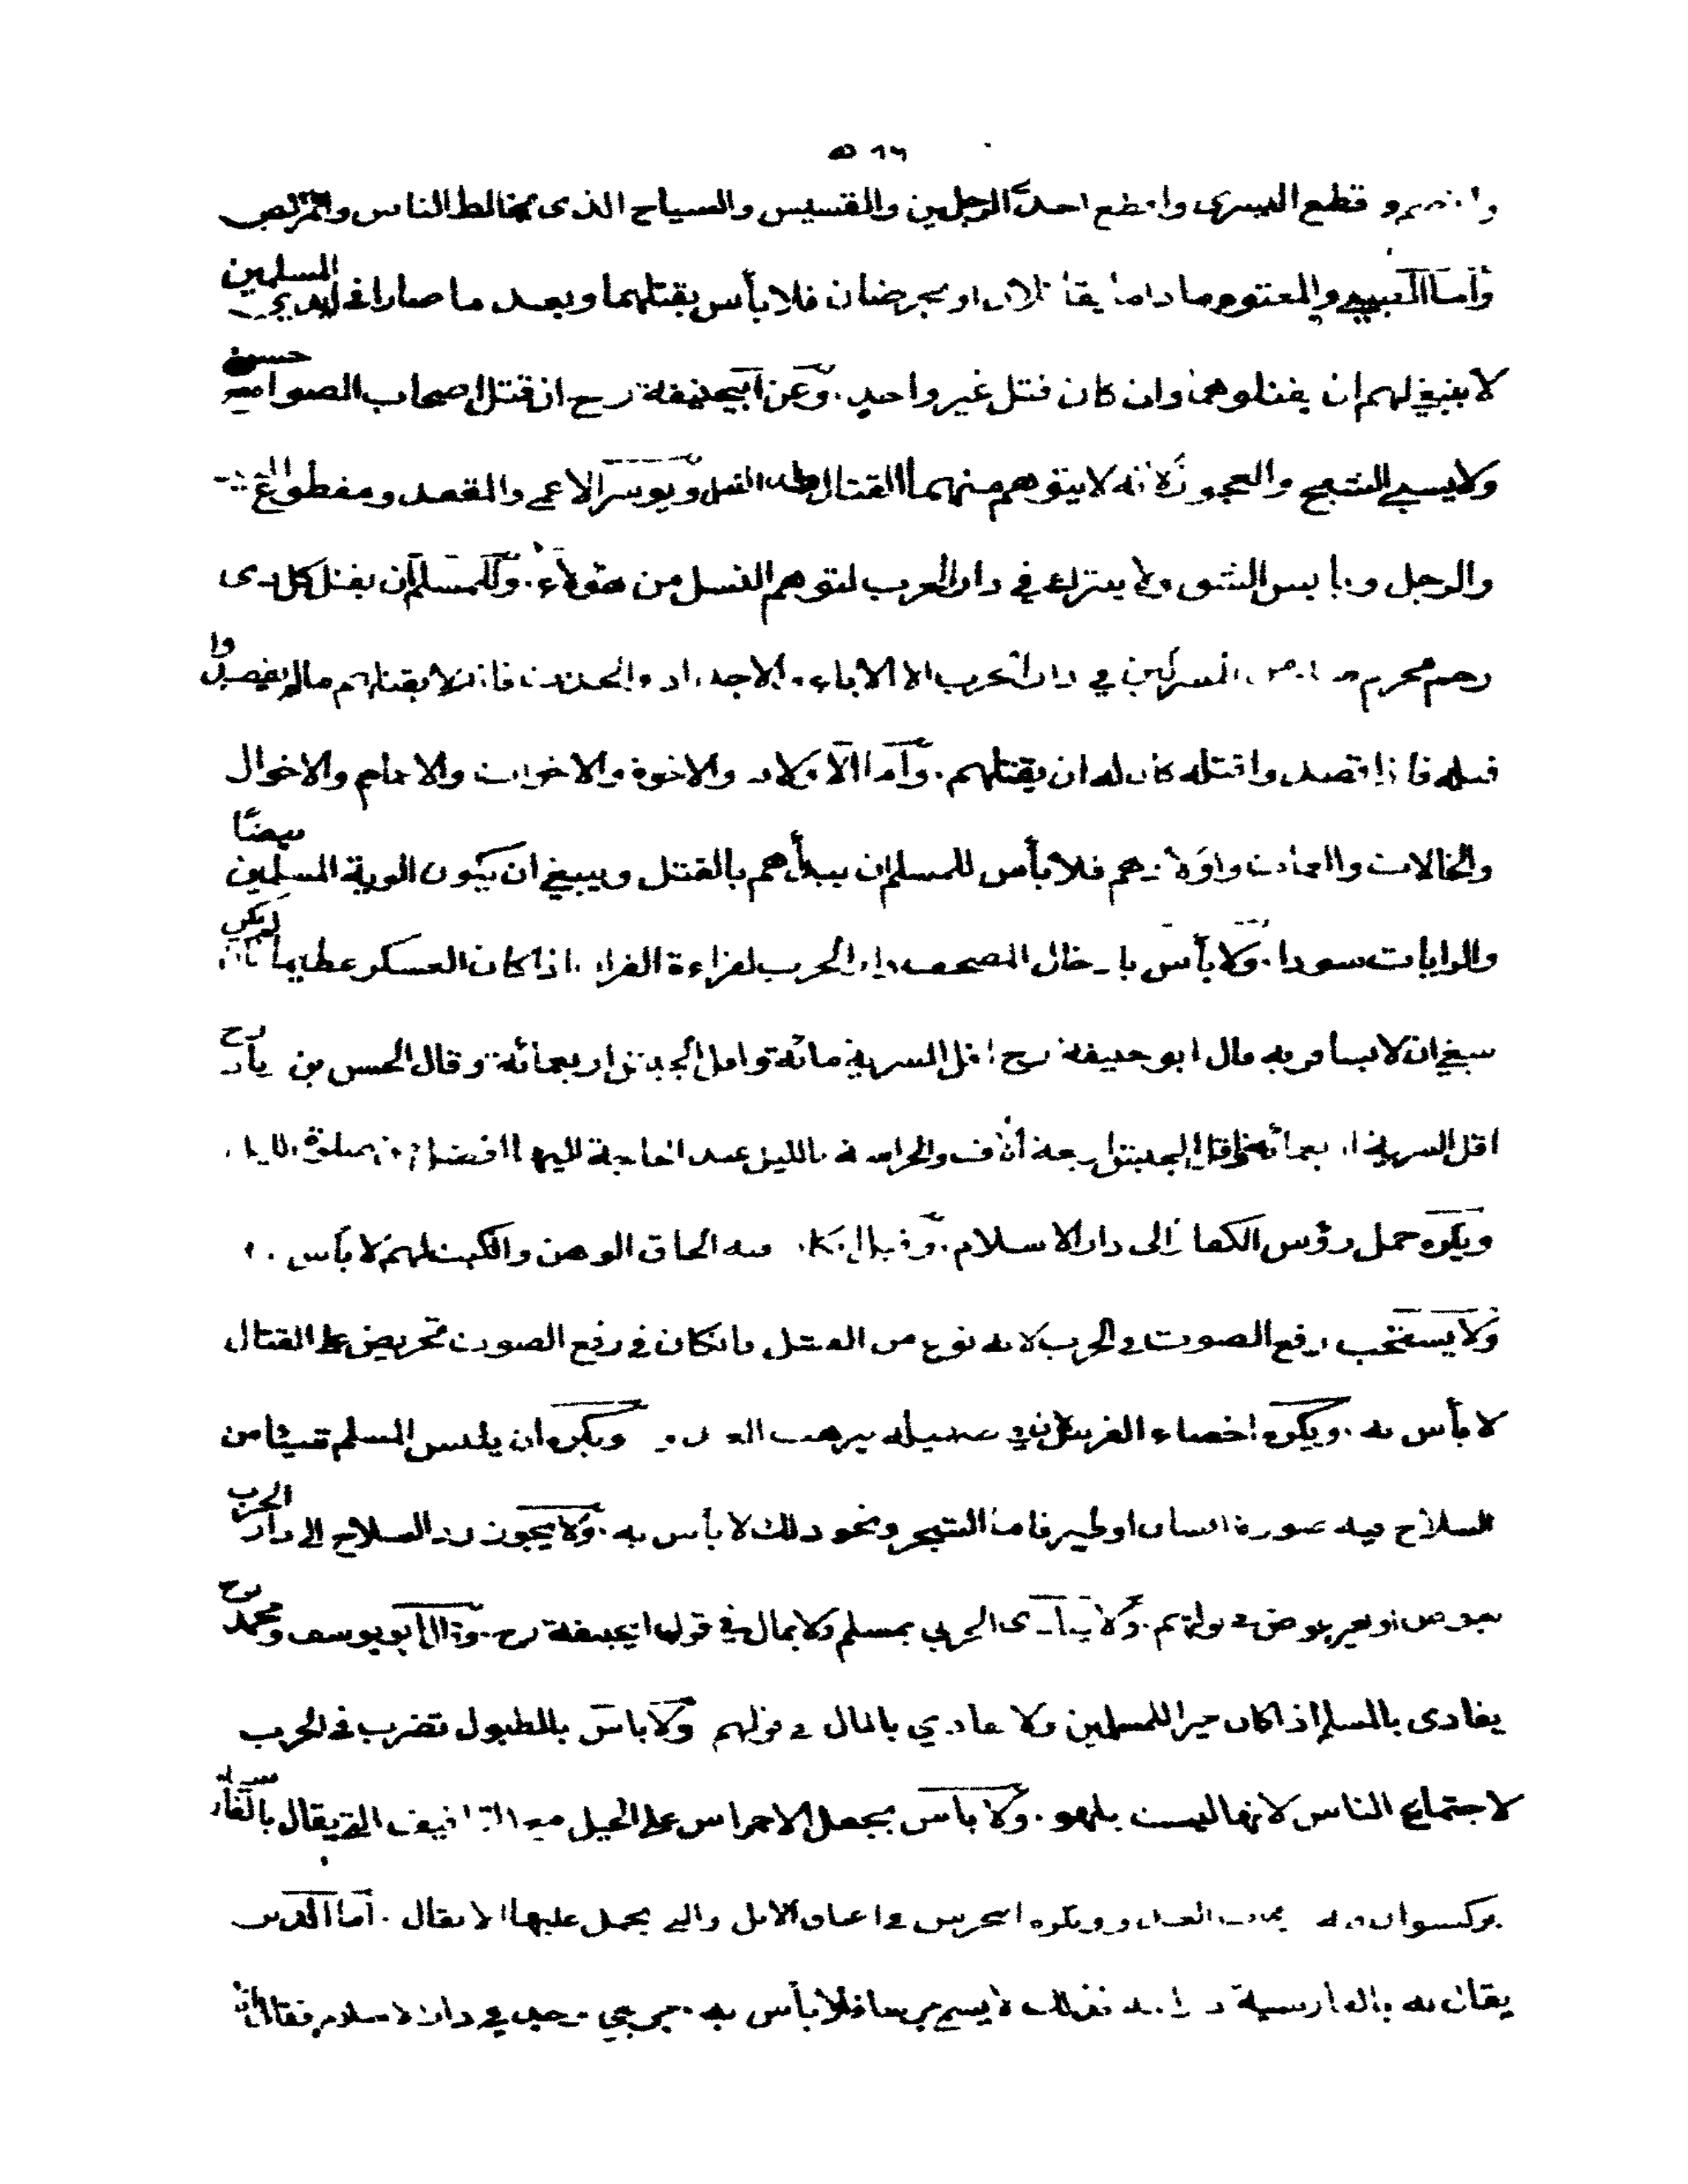 قطع اليسرى واقطع احد الرجلين والقسيس والسياح الذى يخالط الناس والمريض
وأما الصبي والمعتوه ما داما يقاتلان او يحرضان فلا بأس بقتلهما وبعد ما صارا فى ايدي المسلمين
لا ينبغي لهم ان يقتلوهما وان كان قتل غير واحد. وعن ابيحنيفة رح ان قتل اصحاب الصوامع حسن
ولا يسبى الشيخ والعجوز لانه لا يتوهم منهما القتال ولا النسل ويوسر الاعمى والمقعد ومقطوع اليد
والرجل ويابس الشق ولا يترك في دار الحرب لتوهم النسل من هؤلاء. وللمسلم ان يقتل كل ذى
رحم محرم من المشركين في دار الحرب الا الاباء والاجداد والجدات فانه لا يقتلهم ما لم يقصدوا
قتله فاذا قصدوا قتله كان له ان يقتلهم. وأما الاولاد والاخوة والاخوات والاعمام والاخوال
والخالات والعمات واولادهم فلا بأس للمسلم ان يبدأهم بالقتل وينبغي ان يكون الوية المسلمين بيضًا
والرايات سودا. ولا بأس بادخال المصحف دار الحرب لقراءة القران اذا كان العسكر عظيما لم يكن
ينبغي ان لا يسافر به قال ابو حنيفة رح اقل السرية مائة واقل الجيش اربعمائة وقال الحسن بن زياد رح
اقل السرية اربعمائة واقل الجيش اربعة آلاف والحراسة بالليل عند الحاجة اليها افضل من صلوة الليل
ويكره حمل رؤس الكفار الى دار الاسلام. وقيل ان كان فيه الحاق الوهن والكبت لهم لا بأس به
ولا يستحب رفع الصوت في الحرب لانه نوع من الفشل فان كان في رفع الصوت تحريض على القتال
لا بأس به. ويكره اخصاء الفرس لان في صهيله يرهب العدو ويكره ان يلبس المسلم شيئا من
السلاح فيه صورة انسان او طير فاما الشجر ونحو ذلك لا بأس به. ولا يجوز رد السلاح الى دار الحرب
بعوض او بغير عوض في قولهم. ولا يفادى الحربي بمسلم ولا بمال في قول ابيحنيفة رح. وقال ابو يوسف ومحمد رح
يفادى بالمسلم اذا كان خيرا للمسلمين ولا يفادي بالمال في قولهم ولا باس بالطبول تضرب فى الحرب
لاجتماع الناس لانها ليست بلهو. ولا باس بجعل الاجراس على الخيل مع التجافيف التي يقال بالفارسية
بركستوان يرهب العدو ويكره الجرس في اعناق الابل والتي يحمل عليها الاثقال. أما الذى
يقال له بالفارسية فذلك لا يسمى جرسا فلا بأس به. حربي وجد في دار الاسلام فقال